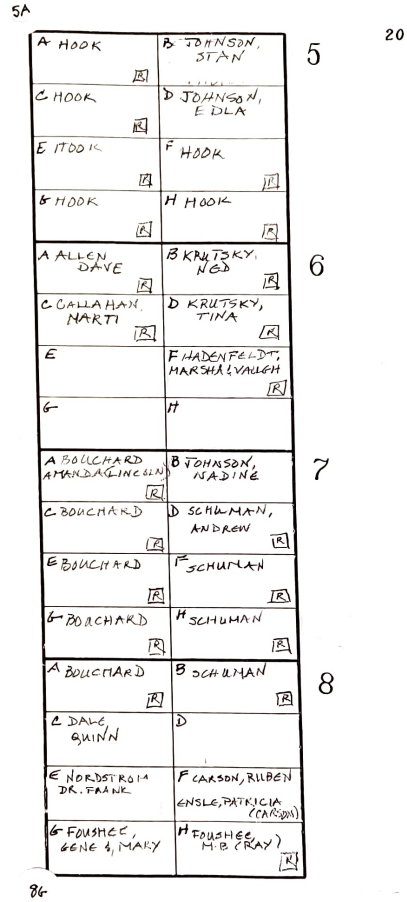 5A
20
A HOOK
R
B JOHNSON,
STAN
5
C HOOK
R
D JOHNSON,
EDLA
E HOOK
R
F HOOK
R
G HOOK
R
H HOOK
R
A ALLEN
DAVE
R
B KRUTSKY,
NED
R
6
C CALLAHAN,
MARTI
R
D KRUTSKY,
TINA
R
E
F HADENFELDT,
MARSHA & VAUGH
R
G
H
A BOUCHARD
AMANDA (LINCOLN)
R
B JOHNSON,
NADINE
7
C BOUCHARD
R
D SCHUMAN,
ANDREW
R
E BOUCHARD
R
F SCHUMAN
R
G BOUCHARD
R
H SCHUMAN
R
A BOUCHARD
R
B SCHUMAN
R
8
C DALE,
QUINN
D
E NORDSTROM
DR. FRANK
F CARSON, RUBEN
ENSLE, PATRICIA
(CARSON)
G FOUSHEE,
GENE &, MARY
H FOUSHEE,
M.B (RAY)
R
8G